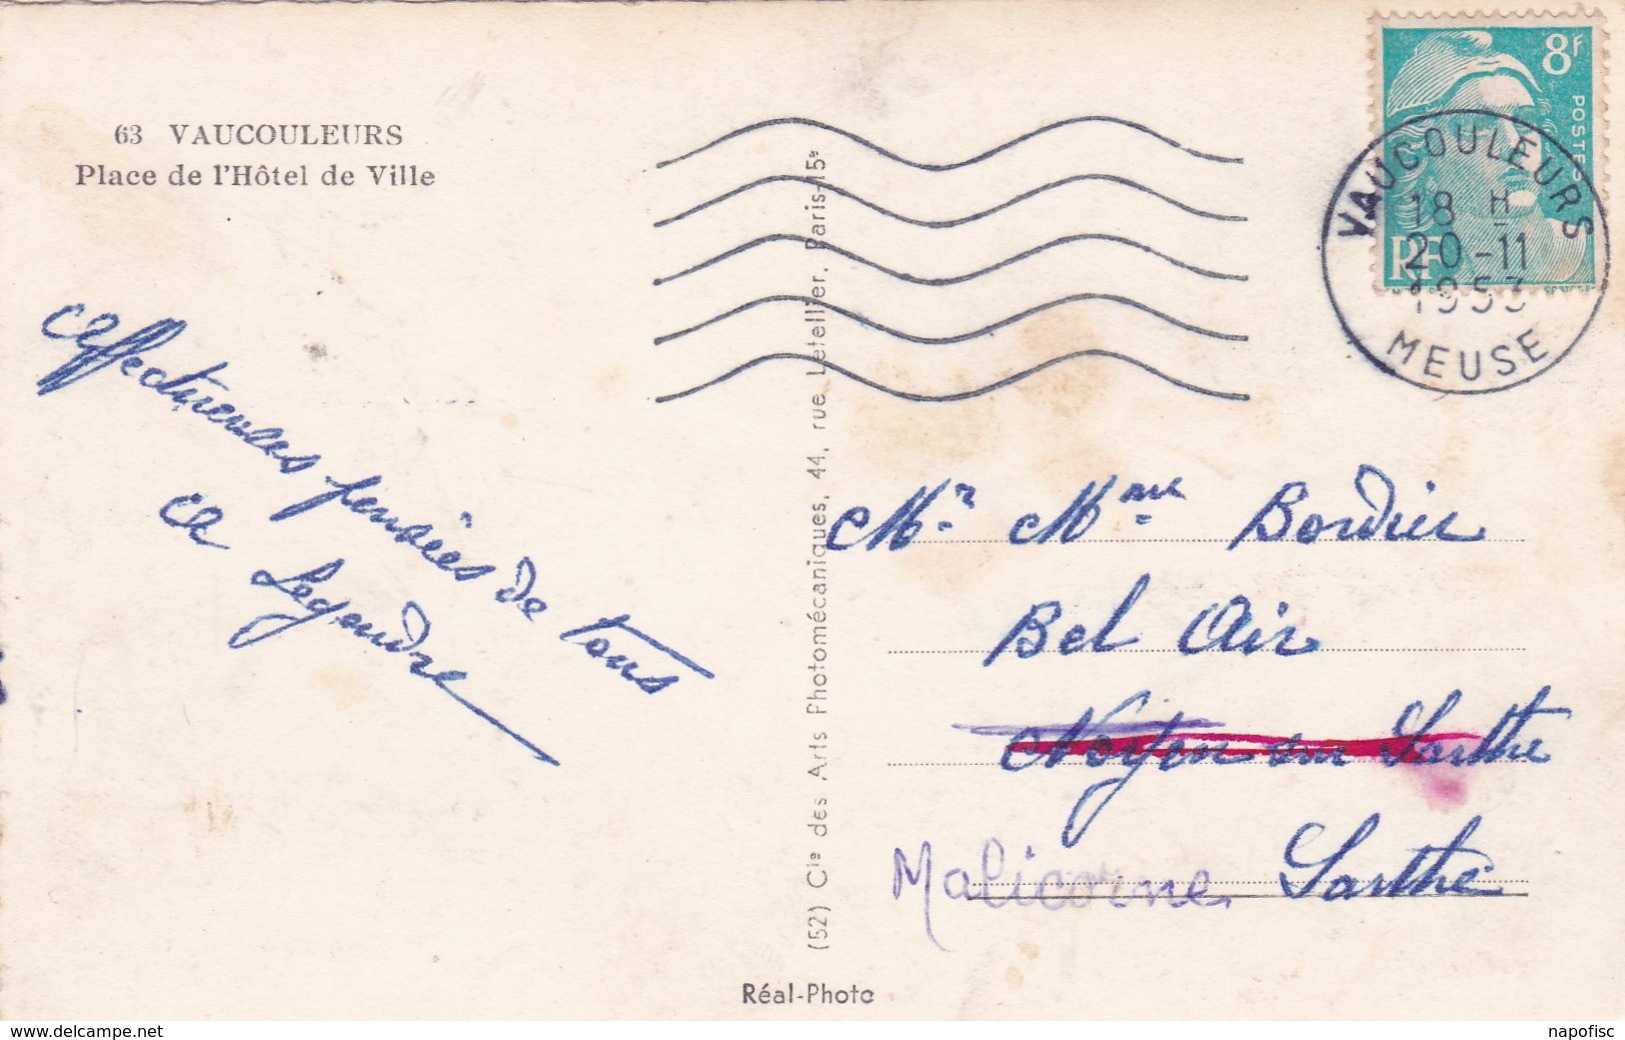 63 VAUCOULEURS
Place de l'Hôtel de Ville
Affectueuses pensées de tous
A Legendre
(52) Cie des Arts Photomécaniques, 44, rue Letellier, Paris-15e
Réal-Photo
8F
POSTES
RF
VAUCOULEURS
18 H
20-11
1953
MEUSE
Mr Mme Bordier
Bel Air
Noyen sur Sarthe
Malicorne Sarthe
www.delcampe.net
napofisc